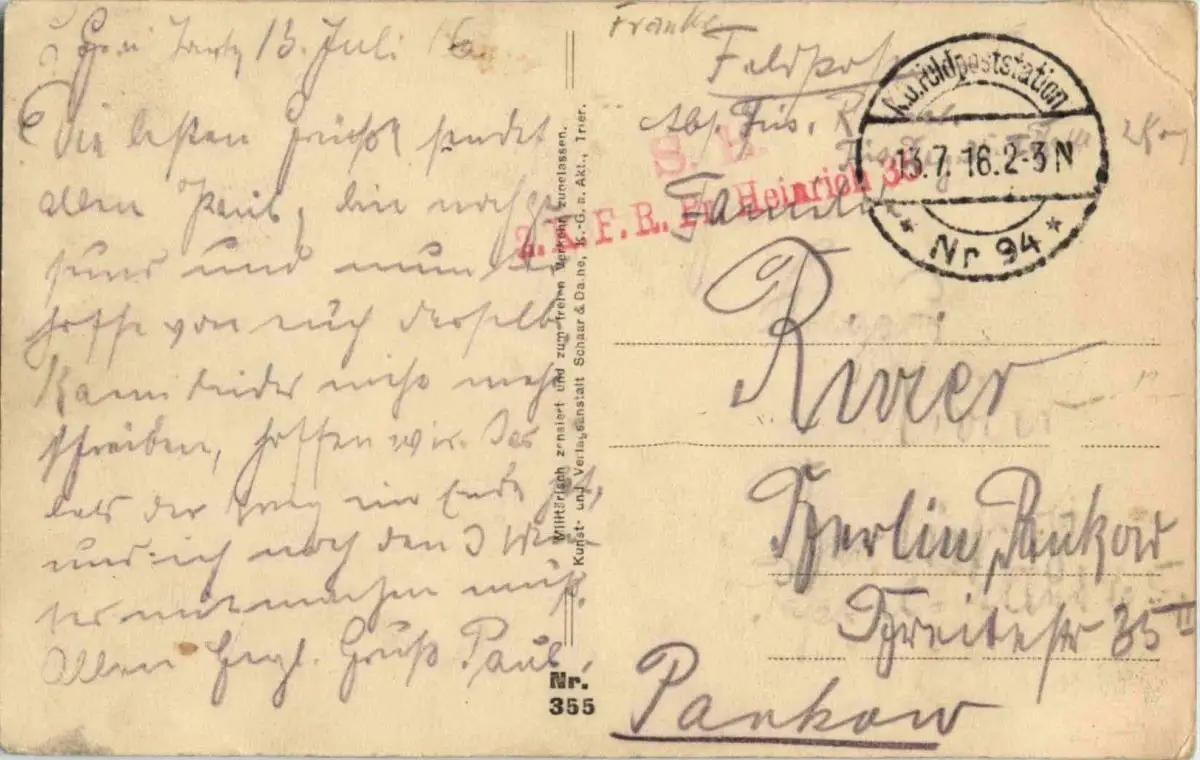 13. Juli 16.
Die besten Grüße sendet
allen Paul, bin noch
und nun
hoffe von euch dasselbe
Kann leider nicht mehr
schreiben, hoffen wir. Das
der Krieg ein Ende hat,
und ich noch den 3 Win-
ter mitmachen muß.
Allen Hrzl. Gruß Paul.
Militärisch zensiert und zum freien Verkehr zugelassen.
Kunst- und Verlagsanstalt Schaar & Dathe, K.-G. a. Akt., Trier.
Nr.
355
Franke
Feldpost
Abs. Füs.
S. B.
2. K. F. R. Pr. Heinrich 35
K.D. Feldpoststation
13.7.16.2-3N
* Nr 94 *
Familie
Rivier
Berlin, Pankow
Breitestr 35 II
Pankow